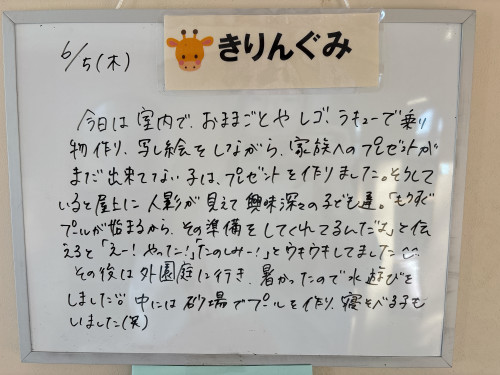 きりんぐみ
6/5(木)
今日は室内で、おままごとや レゴ、ラキューで乗り
物作り、写し絵をしながら、家族へのプレゼントが
まだ出来てない子は、プレゼントを作りました。そうして
いると屋上に人影が見えて興味深々の子ども達。「もうすぐ
プールが始まるから、その準備をしてくれてるんだよ」と伝
えると「えー!やったー!」「たのしみー!」とウキウキしてました
その後は外園庭に行き、暑かったので水遊びを
しました。中には砂場でプールを作り、寝そべる子も
いました(笑)